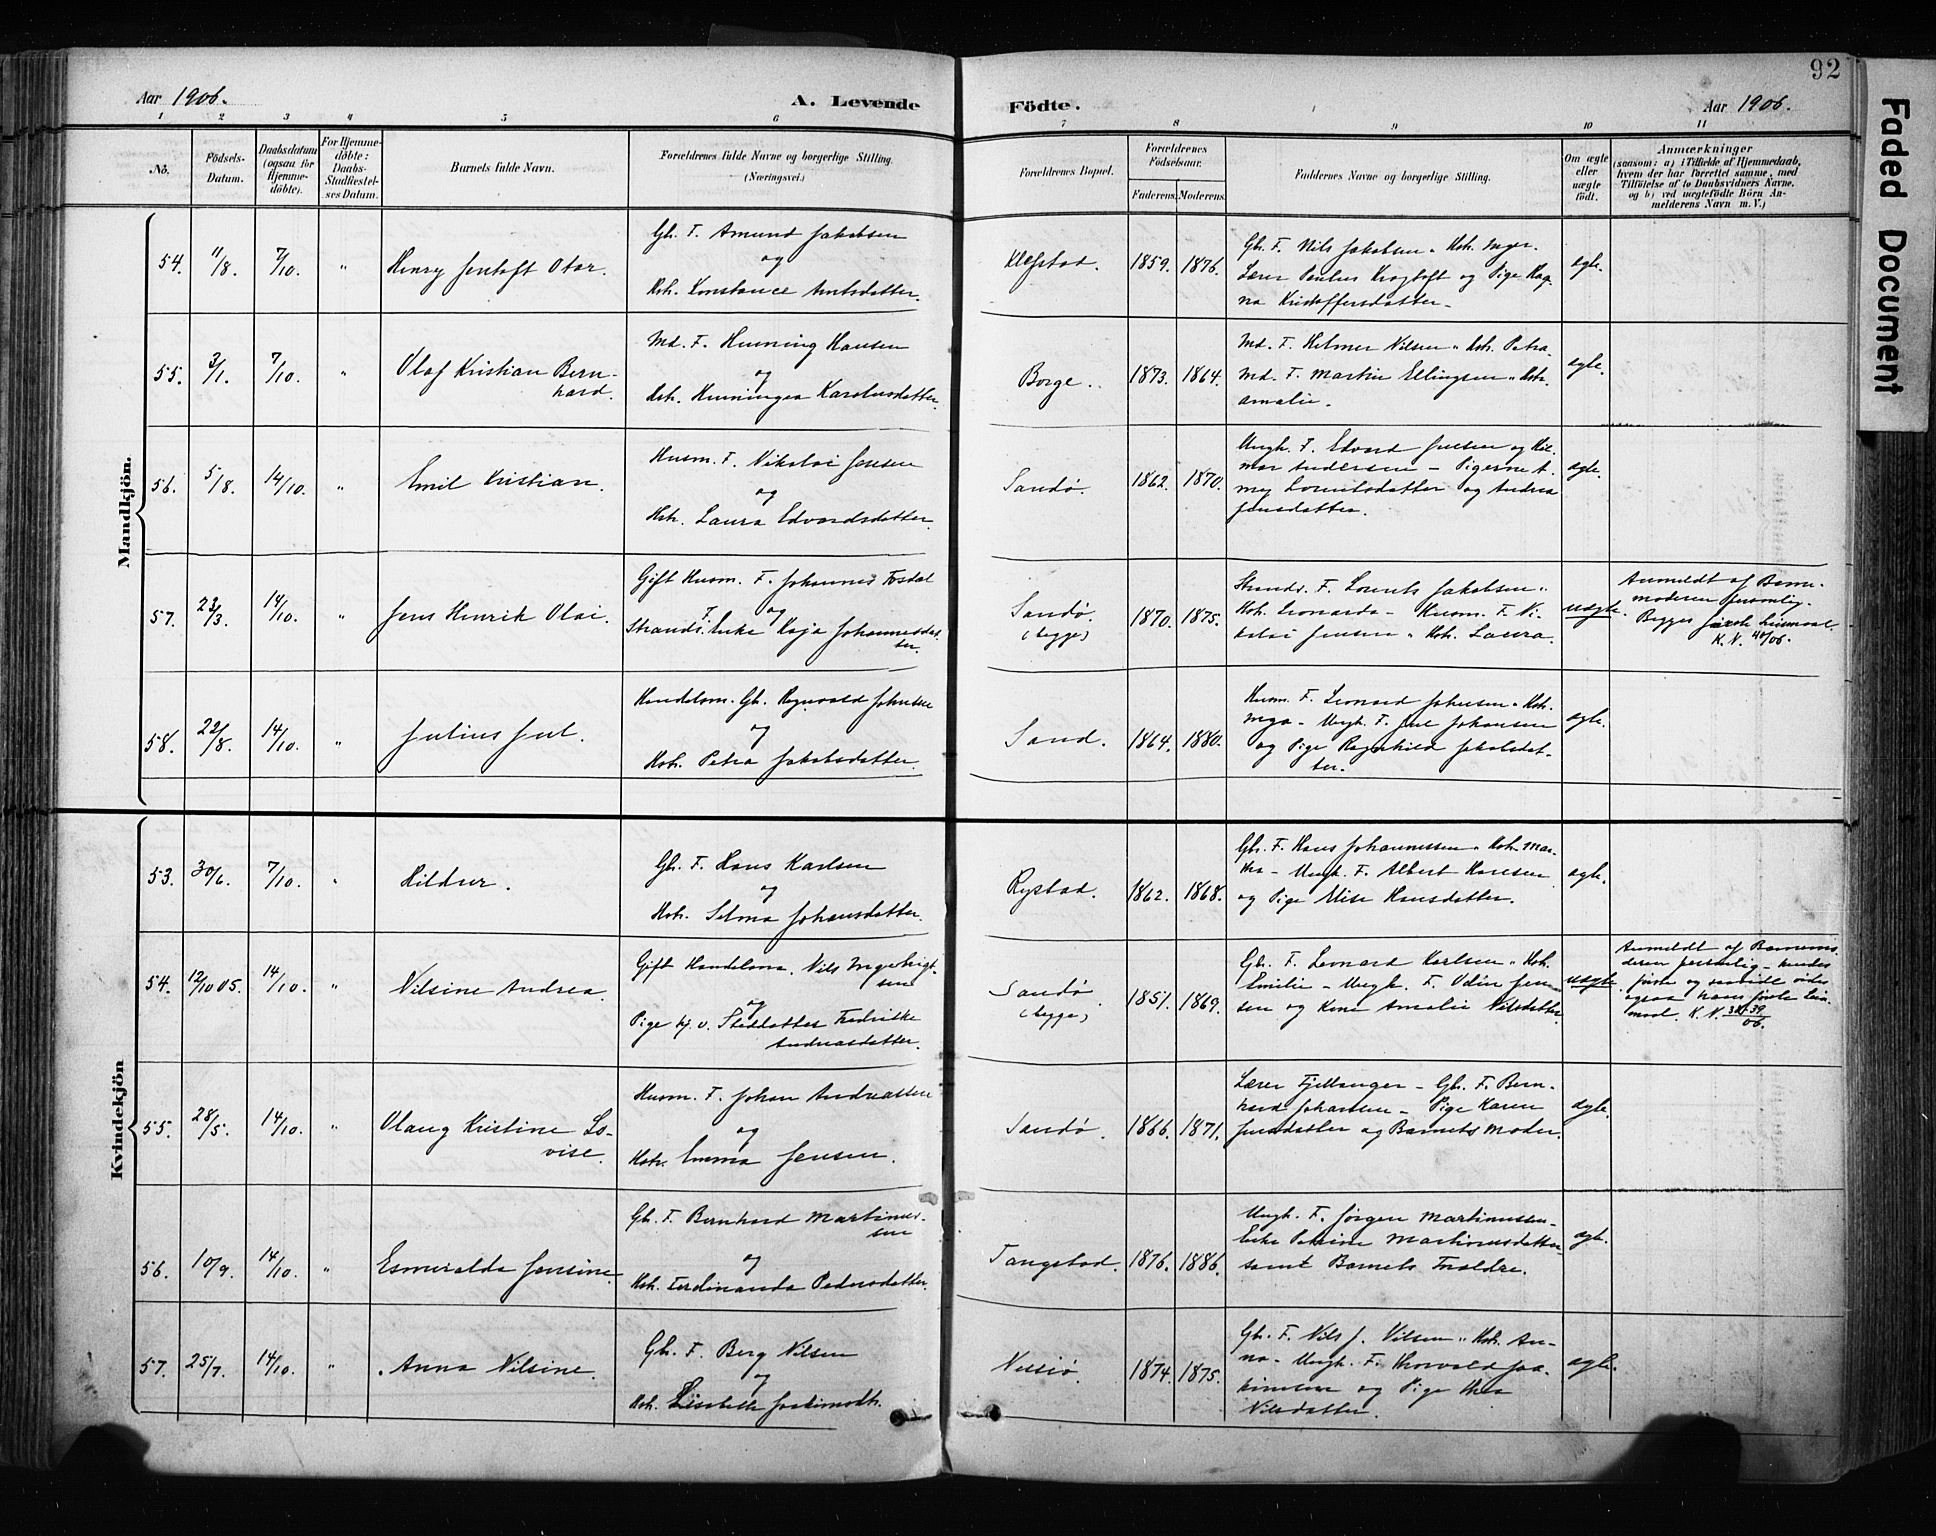 92
Faded Document
Aar 1906.
A. Levende
Födte.
Aar 1906.
1 2 3 4 5 6 7 8 9 10 11
No.
Födsels-
Datum.
Daabsdatum
(ogsaa for
Hjemme-
döbte).
For Hjemme-
döbte:
Daabs-
Stadfæstel-
ses Datum.
Barnets fulde Navn.
Forældrenes fulde Navne og borgerlige Stilling.
(Næringsvei.)
Forældrenes Bopæl.
Forældrenes
Födselsaar.
Faderens. Moderens.
Faddernes Navne og borgerlige Stilling.
Om ægte
eller
uægte
födt.
Anmærkninger
(saasom: a) i Tilfælde af Hjemmedaab,
hvem der har forrettet samme, med
Tilföielse af to Daabsvidners Navne,
og b) ved uægtefödte Börn An-
melderens Navn m. V.)
Mandkjön.
54. 11/8. 7/10. "
Henry Jentoft Otar.
Gb. F. Amund Jakobsen
og
Kstr. Konstance Arntsdatter.
Klefstad. 1859. 1876.
Gb. F. Nils Jakobsen " Kstr. Inger.
Lærer Paulus Krogtoft og Pige Rag-
na Kristoffersdatter.
ægte.
55. 3/1. 7/10. "
Olaf Kristian Bern-
hard.
Md. F. Henning Hansen
og
Kstr. Henningea Karolusdatter.
Borge. 1873. 1864.
Md. F. Helmer Nilsen " Kstr. Petra.
Md. F. Martin Ellingsen " Kstr.
Amalie.
ægte.
56. 5/8. 14/10. "
Emil Kristian.
Husm. F. Nikolai Jensen
og
Kstr. Laura Edvardsdatter.
Sandø. 1862. 1870.
Ungk. F. Edvard Jensen og Hil-
mar Andersen - Pigerne A-
my Lorentsdatter og Andrea
Jensdatter.
ægte.
57. 23/3. 14/10. "
Jens Henrik Olai.
Gift Husm. F. Johannes Fosdal
og
Strands. F. Enke Kaja Johannesdat-
ter.
Sandø.
(begge) 1870. 1875.
Strands. F. Lorents Jakobsen "
Kstr. Leonarda - Husm. F. Ni-
kolai Jensen " Kstr. Laura.
uægte.
Anmeldt af Barne-
moderen personlig.
Begges første Leiermaal.
K. N. 40/06.
58. 22/8. 14/10. "
Julius Juel.
Handelsm. Gb. Ragnvald Johnsen
og
Kstr. Petra Jakobsdatter.
Sand. 1864. 1880.
Husm. F. Leonard Johnsen " Kstr.
Inga - Ungk. F. Juel Johansen
og Pige Ragnhild Jakobsdat-
ter.
ægte.
Kvindekjön
53. 30/6. 7/10. "
Hildur.
Gb. F. Hans Karlsen
og
Kstr. Selma Johansdatter.
Rystad. 1862. 1868.
Gb. F. Hans Johannessen " Kstr. Mar-
tha - Ungk. F. Albert Hansen
og Pige Elise Hansdatter.
ægte.
54. 12/10 05. 14/10. "
Nilsine Andrea.
Gift Handelsm. Nils Ingebrigt-
sen
og
Pige hj. v. Steddatter Fredrikke
Andreasdatter.
Sandø
(begge) 1851. 1869.
Gb. F. Leonard Karlsen " Kstr.
Emilie - Ungk. F. Odin Jen-
sen og Kone Amalie Nilsdatter.
uægte.
Anmeldt af Barnemo-
deren personlig - hendes
første og
ogsaa hans første Leier-
maal. K. N.
55. 28/5. 14/10. "
Olaug Kristine Lo-
vise.
Husm. F. Johan Andreassen
og
Kstr. Emma Jensen.
Sandø. 1866. 1871.
Lærer Fjellanger - Gb. F. Bern-
hard Johansen - Pige Karen
Jensdatter og Barnets Moder.
ægte.
56. 10/9. 14/10. "
Esmeralda Jensine.
Gb. F. Bernhard Martinus-
sen
og
Kstr. Ferdinanda Pedersdatter.
Tangstad. 1876. 1886.
Ungk. F. Jørgen Martinussen -
Enke Petrine Martinusdatter
samt Barnets Forældre.
ægte.
57. 25/7. 14/10. "
Anna Nilsine.
Gb. F. Berg Nilsen
og
Kstr. Lisabeth Joakimsdtr.
1874. 1875.
Gb. F. Nils J. Nilsen " Kstr. An-
na - Ungk. F. Thorvald Joa-
kimsen og Pige Thea
Nilsdatter.
ægte.